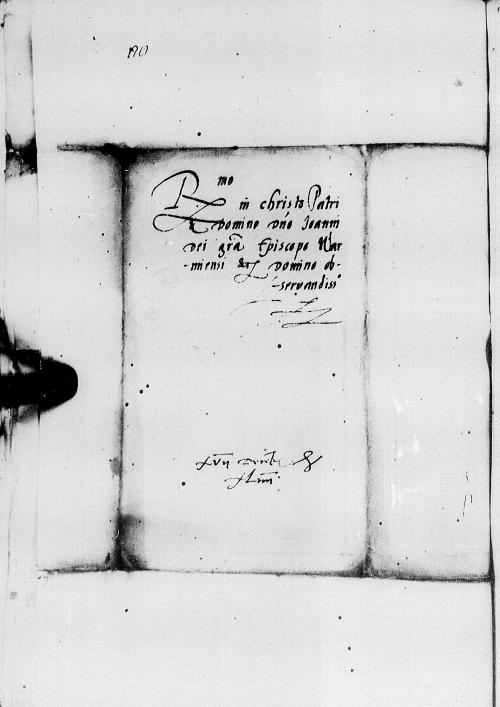 190
R mo
in christo Patri
et Domino Dno Ioanni
Dei gra Episcopo War-
-miensi etc Domino ob-
-seruandisso